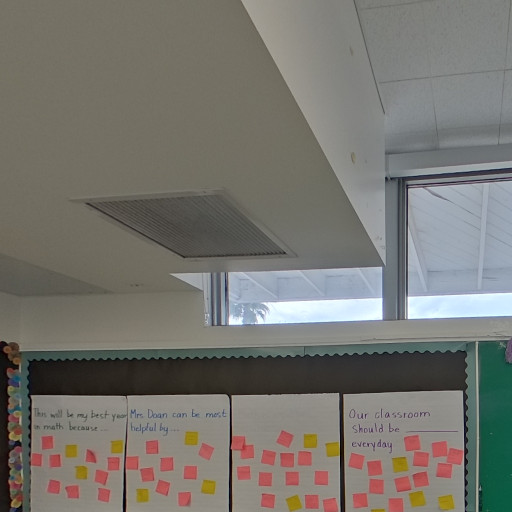 This will be my best year
in math because...
Mrs Doan can be most
helpful by...
Our classroom
should be ________
everyday